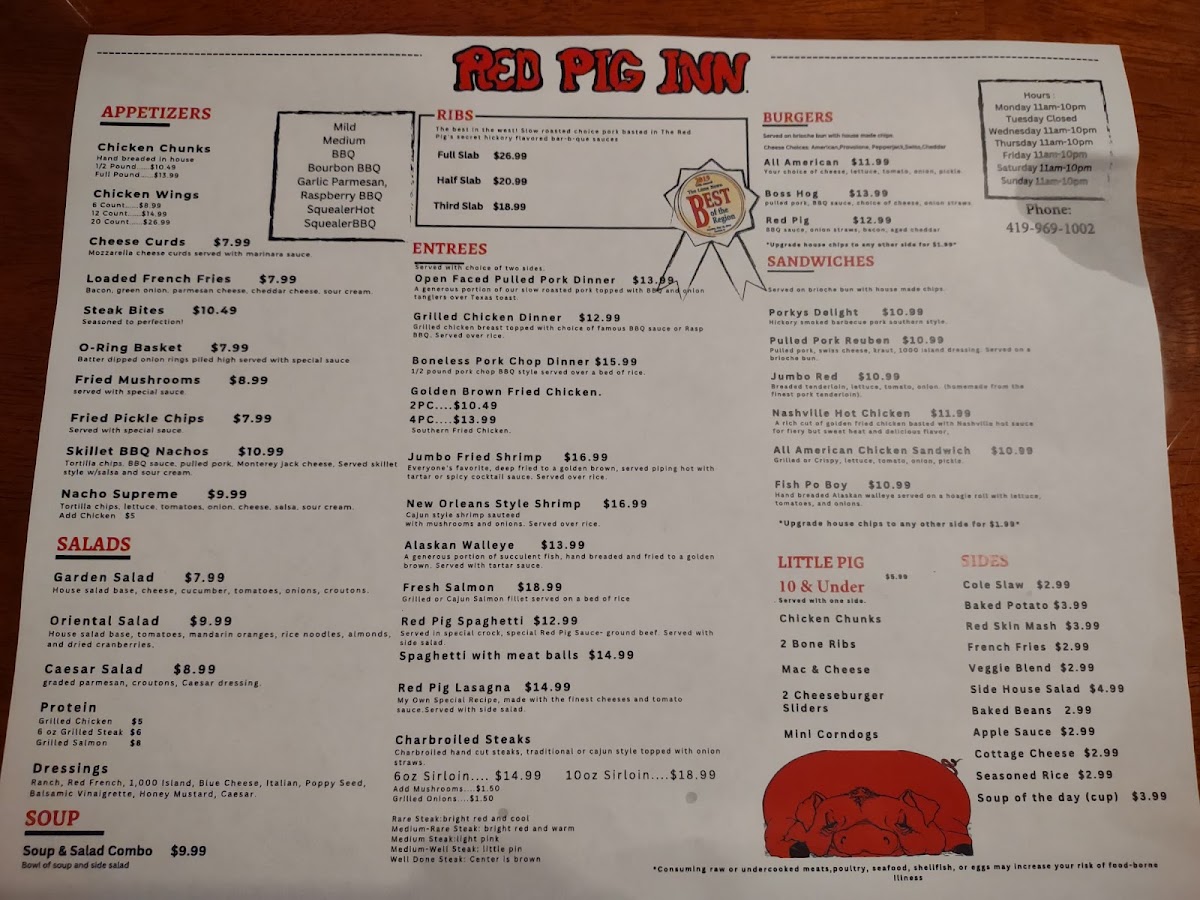 RED PIG INN
APPETIZERS
Chicken Chunks
Hand breaded in house
1/2 Pound.....$10.49
Full Pound.....$13.99
Chicken Wings
6 Count......$8.99
12 Count.....$14.99
20 Count.....$26.99
Cheese Curds $7.99
Mozzarella cheese curds served with marinara sauce.
Loaded French Fries $7.99
Bacon, green onion, parmesan cheese, cheddar cheese, sour cream.
Steak Bites $10.49
Seasoned to perfection!
O-Ring Basket $7.99
Batter dipped onion rings piled high served with special sauce
Fried Mushrooms $8.99
served with special sauce.
Fried Pickle Chips $7.99
Served with special sauce.
Skillet BBQ Nachos $10.99
Tortilla chips, BBQ sauce, pulled pork, Monterey Jack cheese, Served skillet
style w/salsa and sour cream.
Nacho Supreme $9.99
Tortilla chips, lettuce, tomatoes, onion, cheese, salsa, sour cream.
Add Chicken $5
SALADS
Garden Salad $7.99
House salad base, cheese, cucumber, tomatoes, onions, croutons.
Oriental Salad $9.99
House salad base, tomatoes, mandarin oranges, rice noodles, almonds,
and dried cranberries.
Caesar Salad $8.99
graded parmesan, croutons, Caesar dressing.
Protein
Grilled Chicken $5
6 oz Grilled Steak $6
Grilled Salmon $8
Dressings
Ranch, Red French, 1,000 Island, Blue Cheese, Italian, Poppy Seed,
Balsamic Vinaigrette, Honey Mustard, Caesar.
SOUP
Soup & Salad Combo $9.99
Bowl of soup and side salad
Mild
Medium
BBQ
Bourbon BBQ
Garlic Parmesan,
Raspberry BBQ
SquealerHot
SquealerBBQ
RIBS
The best in the west! Slow roasted choice pork basted in The Red
Pig's secret hickory flavored bar-b-que sauces
Full Slab $26.99
Half Slab $20.99
Third Slab $18.99
2019
The Lima News
BEST
of the
Region
ENTREES
Served with choice of two sides.
Open Faced Pulled Pork Dinner $13.99
A generous portion of our slow roasted pork topped with BBQ and onion
tanglers over Texas toast.
Grilled Chicken Dinner $12.99
Grilled chicken breast topped with choice of famous BBQ sauce or Rasp
BBQ. Served over rice.
Boneless Pork Chop Dinner $15.99
1/2 pound pork chop BBQ style served over a bed of rice.
Golden Brown Fried Chicken.
2PC....$10.49
4PC....$13.99
Southern Fried Chicken.
Jumbo Fried Shrimp $16.99
Everyone's favorite, deep fried to a golden brown, served piping hot with
tartar or spicy cocktail sauce. Served over rice.
New Orleans Style Shrimp $16.99
Cajun style shrimp sauteed
with mushrooms and onions. Served over rice.
Alaskan Walleye $13.99
A generous portion of succulent fish, hand breaded and fried to a golden
brown. Served with tartar sauce.
Fresh Salmon $18.99
Grilled or Cajun Salmon fillet served on a bed of rice
Red Pig Spaghetti $12.99
Served in special crock, special Red Pig Sauce- ground beef. Served with
side salad.
Spaghetti with meat balls $14.99
Red Pig Lasagna $14.99
My Own Special Recipe, made with the finest cheeses and tomato
sauce.Served with side salad.
Charbroiled Steaks
Charbroiled hand cut steaks, traditional or cajun style topped with onion
straws.
6oz Sirloin.... $14.99 10oz Sirloin....$18.99
Add Mushrooms....$1.50
Grilled Onions....$1.50
Rare Steak:bright red and cool
Medium-Rare Steak: bright red and warm
Medium Steak:light pink
Medium-Well Steak: little pin
Well Done Steak: Center is brown
BURGERS
Served on brioche bun with house made chips
Cheese Choices: American,Provolone, Pepperjack,Swiss,Cheddar
All American $11.99
Your choice of cheese, lettuce, tomato, onion, pickle.
Boss Hog $13.99
pulled pork, BBQ sauce, choice of cheese, onion straws.
Red Pig $12.99
BBQ sauce, onion straws, bacon, aged cheddar
*Upgrade house chips to any other side for $1.99*
SANDWICHES
Served on brioche bun with house made chips.
Porkys Delight $10.99
Hickory smoked barbecue pork southern style.
Pulled Pork Reuben $10.99
Pulled pork, swiss cheese, kraut, 1000 island dressing. Served on a
brioche bun.
Jumbo Red $10.99
Breaded tenderloin, lettuce, tomato, onion. (homemade from the
finest pork tenderloin).
Nashville Hot Chicken $11.99
A rich cut of golden fried chicken basted with Nashville hot sauce
for fiery but sweet heat and delicious flavor,
All American Chicken Sandwich $10.99
Grilled or Crispy, lettuce, tomato, onion, pickle.
Fish Po Boy $10.99
Hand breaded Alaskan walleye served on a hoagie roll with lettuce,
tomatoes, and onions.
*Upgrade house chips to any other side for $1.99*
Hours :
Monday 11am-10pm
Tuesday Closed
Wednesday 11am-10pm
Thursday 11am-10pm
Friday 11am-10pm
Saturday 11am-10pm
Sunday 11am-10pm
Phone:
419-969-1002
LITTLE PIG
10 & Under $5.99
Served with one side.
Chicken Chunks
2 Bone Ribs
Mac & Cheese
2 Cheeseburger
Sliders
Mini Corndogs
SIDES
Cole Slaw $2.99
Baked Potato $3.99
Red Skin Mash $3.99
French Fries $2.99
Veggie Blend $2.99
Side House Salad $4.99
Baked Beans 2.99
Apple Sauce $2.99
Cottage Cheese $2.99
Seasoned Rice $2.99
Soup of the day (cup) $3.99
*Consuming raw or undercooked meats,poultry, seafood, shellfish, or eggs may increase your risk of food-borne
illness